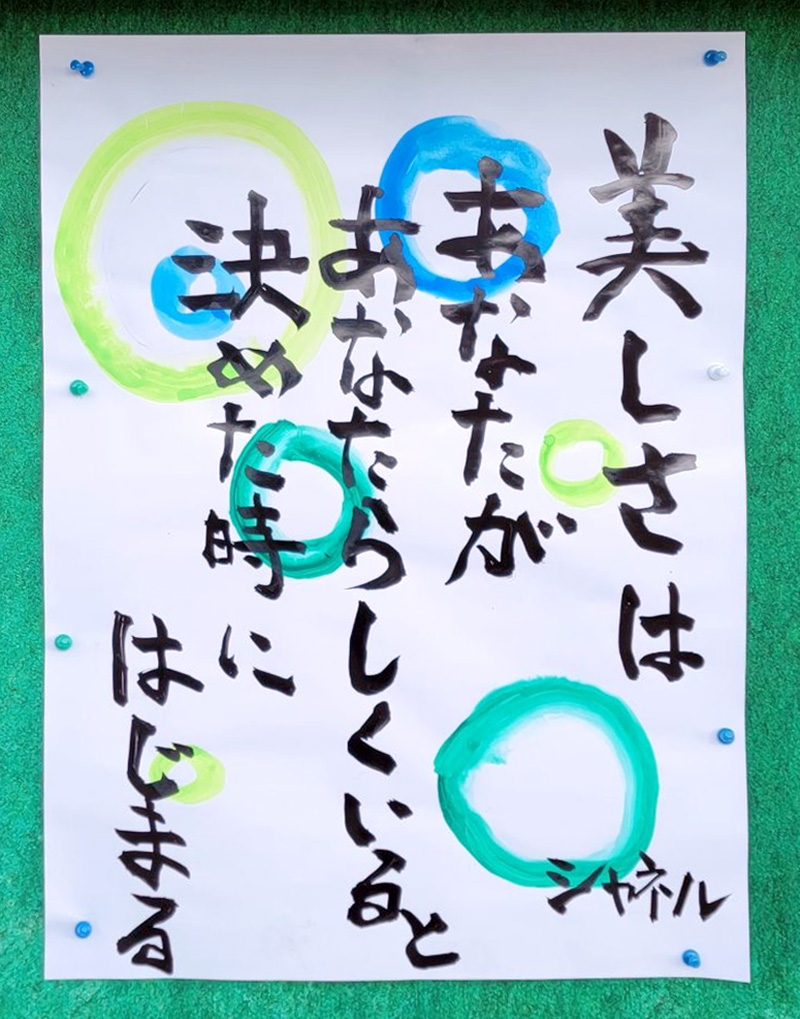 美しさは
あなたが
あなたらしくいると
決めた時に
はじまる
シャネル